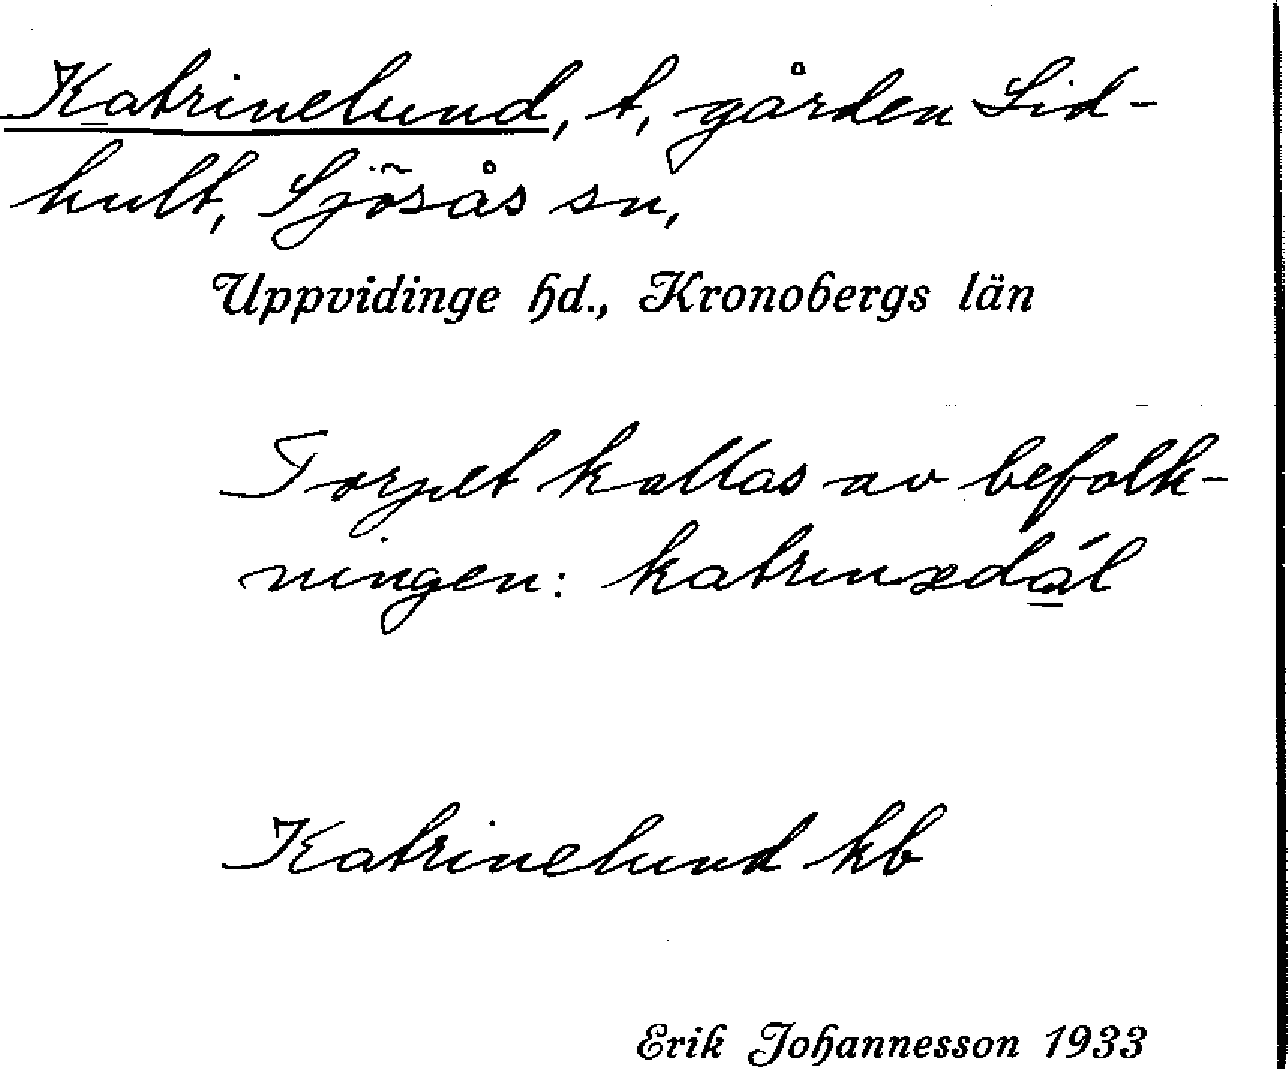 Katrinelund, t, gården Lid-
hult, Sjösås sn,
Uppvidinge hd., Kronobergs län
Torpet kallas av befolk-
ningen: katrinedál
Katrinelund kb
Erik Johannesson 1933